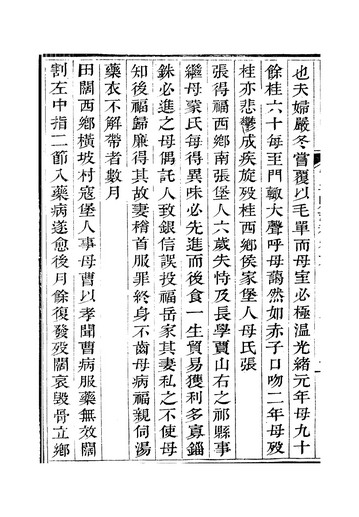 也夫婦嚴冬嘗覆以毛單而母室必極溫光緒元年母九十
餘桂六十每至門輙大聲呼母藹然如赤子口吻二年母歿
桂亦悲鬱成疾旋歿桂西鄉侯家堡人母氏張
張得福西鄉南張堡人六歲失恃及長學賈山右之祁縣事
繼母蒙氏每得異味必先進而後食一生貿易獲利多寡錙
銖必進之母偶託人致銀信誤投福岳家其妻私之不使母
知後福歸廉得其故妻稽首服罪終身不齒母病福親伺湯
藥衣不解帶者數月
田闊西鄉橫坡村寇堡人事母曹以孝聞曹病服藥無效闊
割左中指二節入藥病遂愈後月餘復發歿闊哀毀骨立鄉